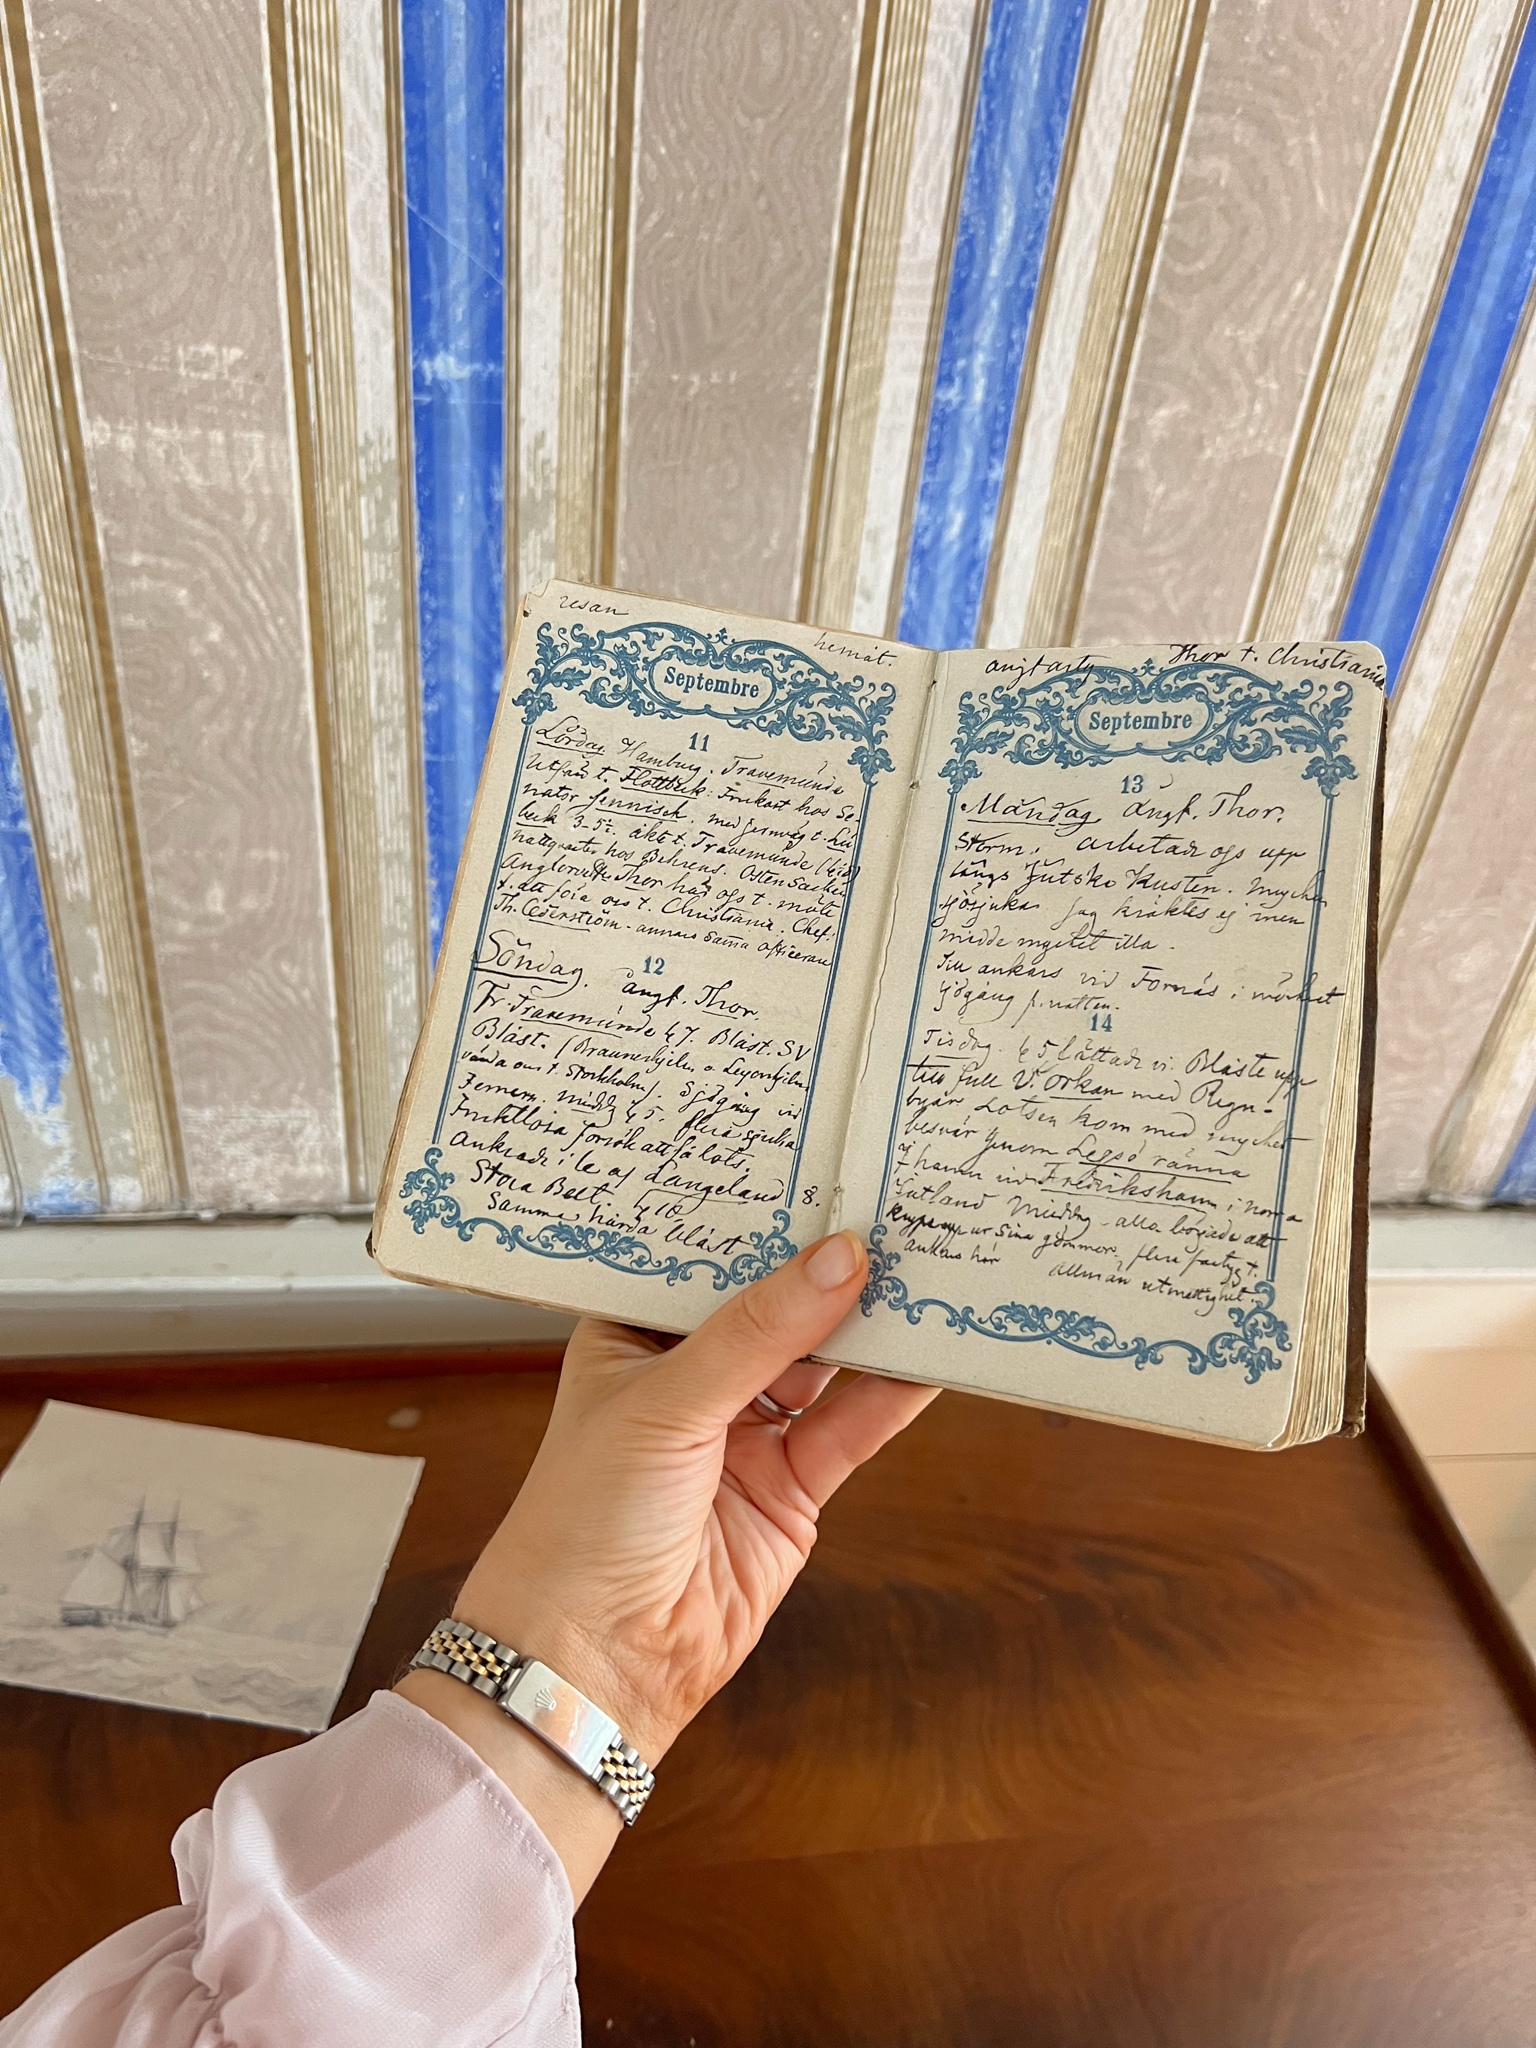 resan hemåt.
Septembre
11
Lördag. Hamburg. Travemünde
Utfärd t. Flottbeck: Frukost hos Se-
nator Jennisch. med jernväg t. Lü
beck 3-5½. åkte t. Travemünde
nattqvarter hos Behrens. Osten Sacken
Ångkorvette Thor här ogs t. möte
f. att föra oss t. Christiania. Chef:
Th. Cederström - annars samma officerare
12
Söndag. ångf. Thor.
Fr. Travemünde kl 7. Blåst. SV
Blåst. (Braunerhjelm o. Leyonhjelm
vända om t. Stockholm). Sjögång vid
Femern. middg kl 5. flera sjuka
Fruktlösa försök att få lots.
Ankrade i lä af Langeland 8.
Stora Belt. kl 10.
Samma hårda blåst
ångfartyg Thor t. Christiania
Septembre
13
Måndag. ångf. Thor.
Storm. arbetade ogs upp
längs Jutska Kusten. mycken
sjösjuka. Jag kräktes ej men
mådde mycket illa.
Till ankars vid Fornäs i mörkret
sjögång f. natten.
14
Tisdag. kl 5 lättade vi. Blåste upp
till full V. orkan med Regn-
byar Lotsen kom med mycket
besvär genom Legsö ränna
i hamn vid Fredrikshamn i norra
Jutland Middg - alla började att
krypa upp ur sina gömmor. flera fartyg t.
ankars här Allmän utmattighet.